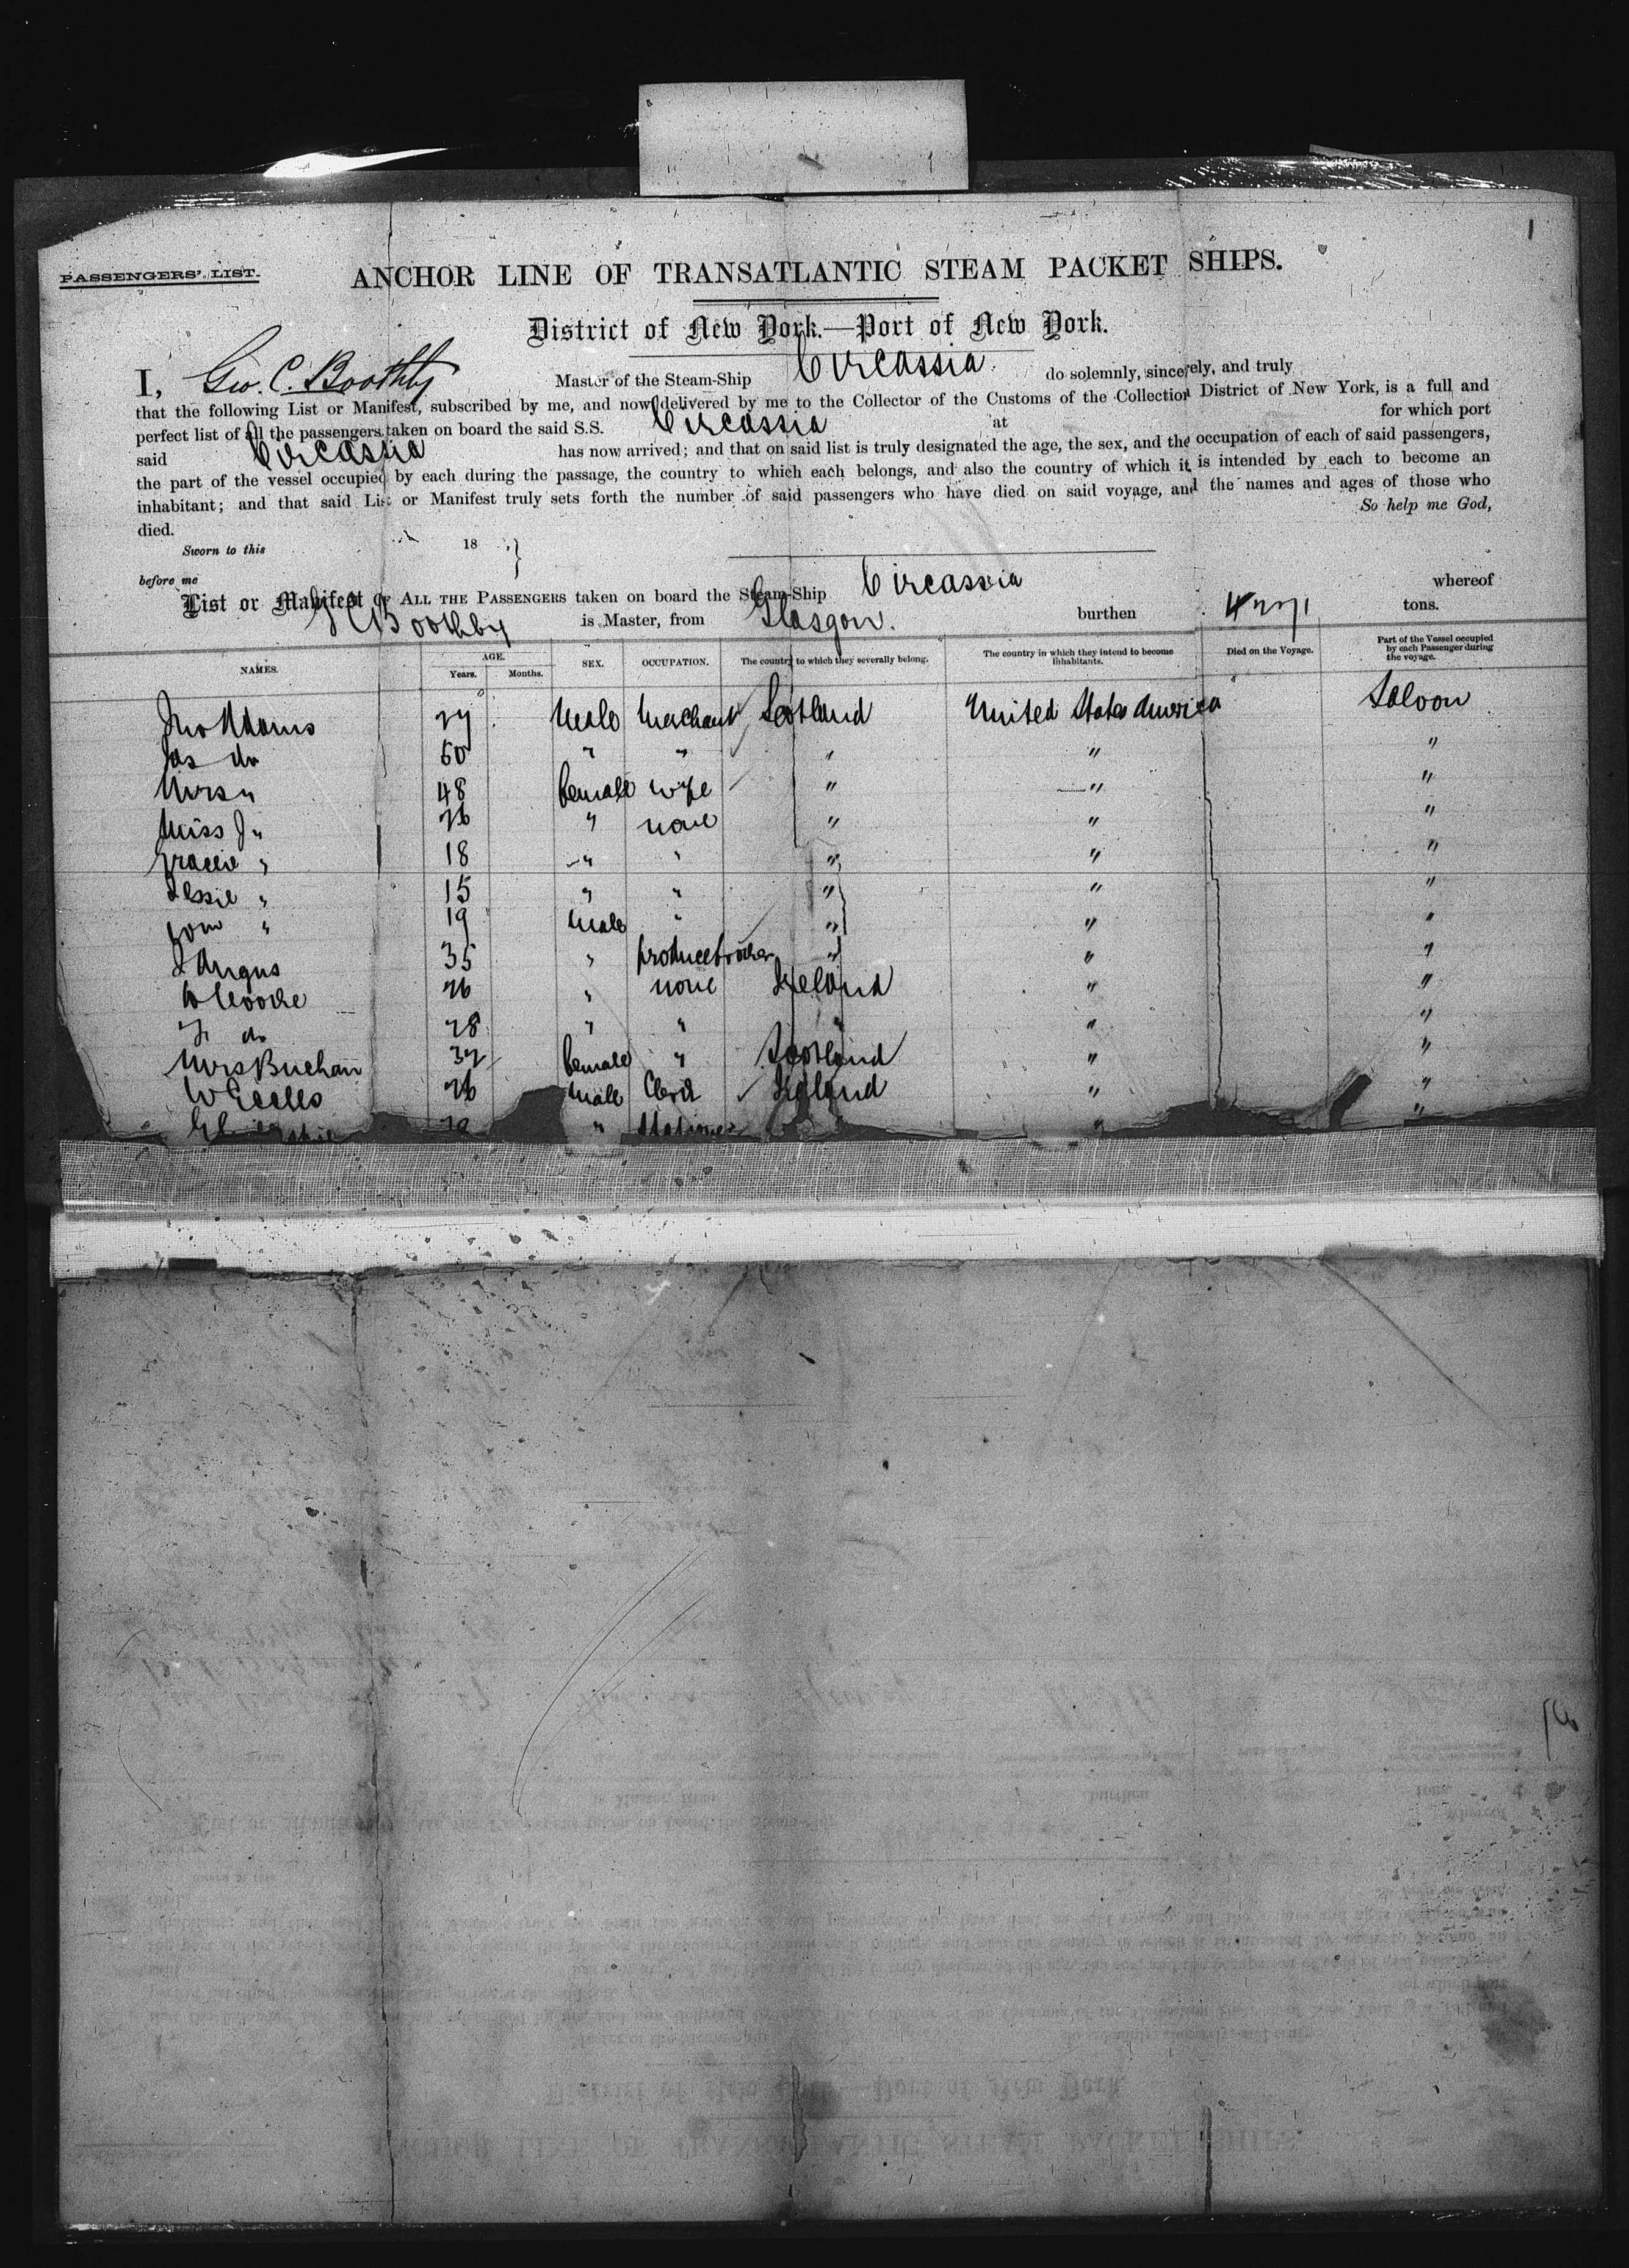 1
PASSENGERS' LIST.
ANCHOR LINE OF TRANSATLANTIC STEAM PACKET SHIPS.
District of New York.—Port of New York.
I, Geo. C. Boothby Master of the Steam-Ship Circassia do solemnly, sincerely, and truly
that the following List or Manifest, subscribed by me, and now delivered by me to the Collector of the Customs of the Collection District of New York, is a full and
perfect list of all the passengers taken on board the said S.S. Circassia at for which port
said Circassia has now arrived; and that on said list is truly designated the age, the sex, and the occupation of each of said passengers,
the part of the vessel occupied by each during the passage, the country to which each belongs, and also the country of which it is intended by each to become an
inhabitant; and that said List or Manifest truly sets forth the number of said passengers who have died on said voyage, and the names and ages of those who
died. So help me God,
Sworn to this 18
before me
List or Manifest of ALL THE PASSENGERS taken on board the Steam-Ship Circassia whereof
Boothby is Master, from Glasgow. burthen tons.
NAMES. AGE. Years. Months. SEX. OCCUPATION. The country to which they severally belong. The country in which they intend to become inhabitants. Died on the Voyage. Part of the Vessel occupied by each Passenger during the voyage.
Jno Adams 27 Male Merchant Scotland United States America Saloon
Jas do 50 " " " " "
Mrs " 48 female wife " " "
Miss J " 26 " none " " "
Gracie " 18 " " " " "
Jessie " 15 " " " " "
Tom " 19 Male " " " "
J Angus 35 " produce broker " " "
26 " none Ireland " "
do 28 " " " " "
Mrs Buchan 32 female " Scotland " "
W Eccles 26 Male Clerk Ireland " "
" Stationer " "